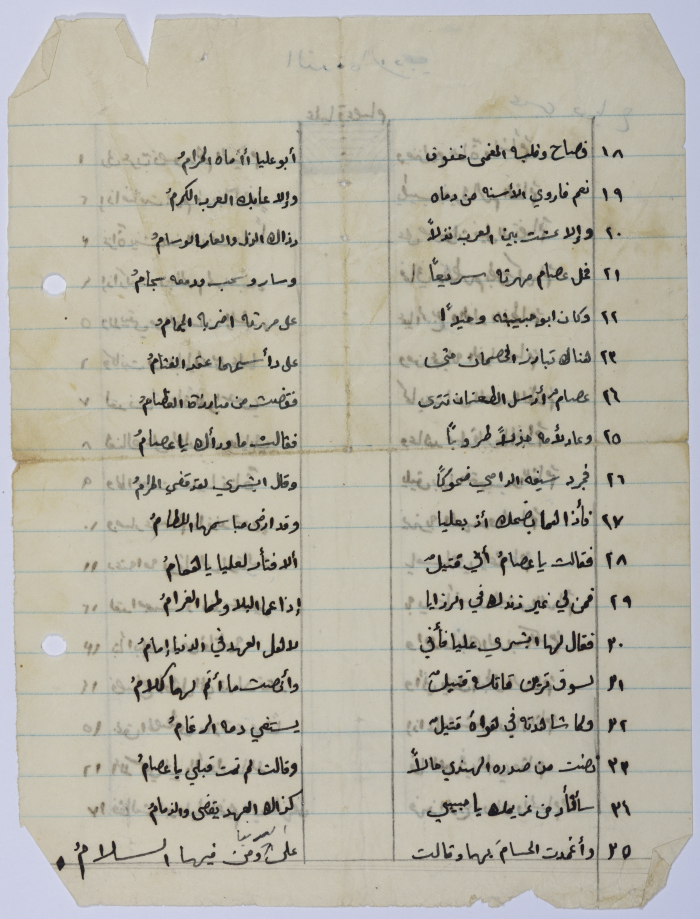 ١٨ فصاح وقلبه المضنى خفوق أبو عليا أماه الحرامُ
١٩ نعم فاروي الأسنه من دماه وإلا عابك العرب الكرمُ
٢٠ وإلا عشت بين العرب نذلاً وذاك الذل والعار الوسامُ
٢١ فخل عصام مهرته سريعاً وسار و ودمعه سجامُ
٢٢ وكان ابو حبيبته على مهرته
٢٣ هناك تبارز الخصمان حتى على رأسيهما عقد القتامُ
٢٤ عصامُ أرسل الطعنات تترى فقضت من مبارزة العظامُ
٢٥ وعاد لأمه جذلاً طروباً فقالت ما وراك يا عصامُ
٢٦ فجرد سيفه الدامي ضحوكاً وقال ابشري لقد قضي المرامُ
٢٧ فأذا لهما بضحك أذ بعليا وقد ارخى مباسمها اللطامُ
٢٨ فقالت يا عصامُ أبي قتيلٌ ألا فتأر لعليا يا همامُ
٢٩ فمن لي غير زندك في الرزايا إذا عما البلا وطما الغرامُ
٣٠ فقال لها ابشري عليا فأني لأهل العهد في الدنيا إمامُ
٣١ لسوف ترين قاتله قتيلٌ وأنصت ما أتم لها كلامُ
٣٢ ولما شاهدته في هواهُ قتيلٌ يستقي دمه الرغامُ
٣٣ نضت من صدره الهندي حالاً وقالت لم تمت قبلي يا عصامُ
٣٤ سأثأر من غريمك يا حبيبي كذاك العهد يقضى والذمامُ
٣٥ وأغمدت الحسامَ بها وقالت على الدنيا ومن فيها السلامُ